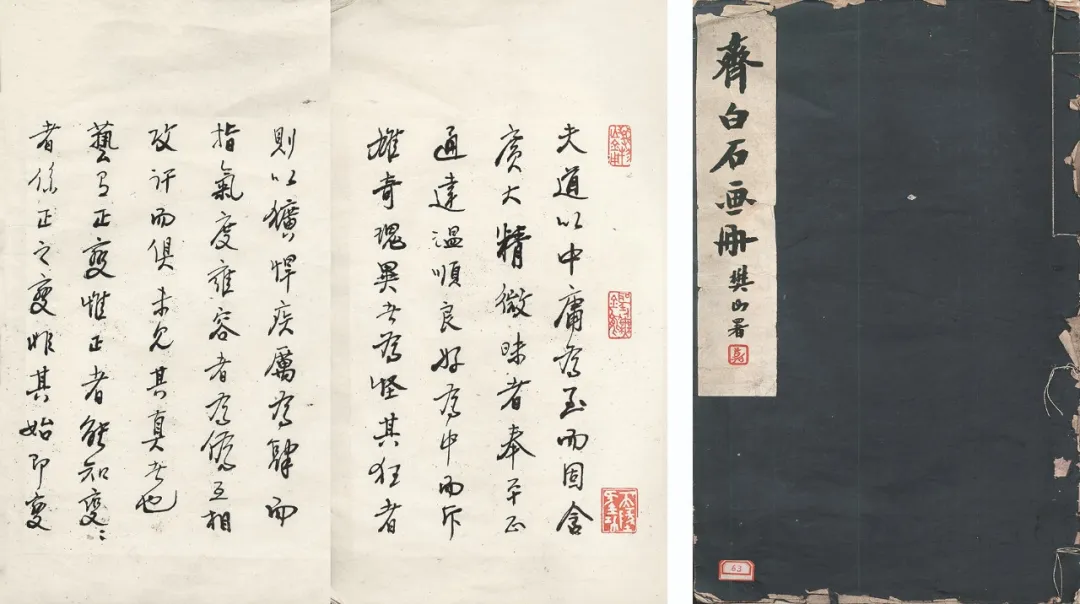 齊白石画冊
樊山署
63
夫道以中庸為至而固含
廣大精微昧者奉平正
通達溫順良好為中而斥
雄奇瑰異者為怪其狂者
則以獷悍疾厲為肆而
指氣度雍容者為偽互相
攻訐而俱未見其真者也
藝有正變惟正者能知變〻
者係正之變非其始即變